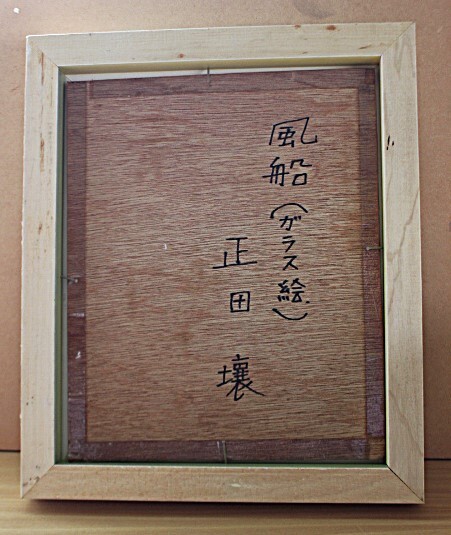 風船(ガラス絵)
正田 壤